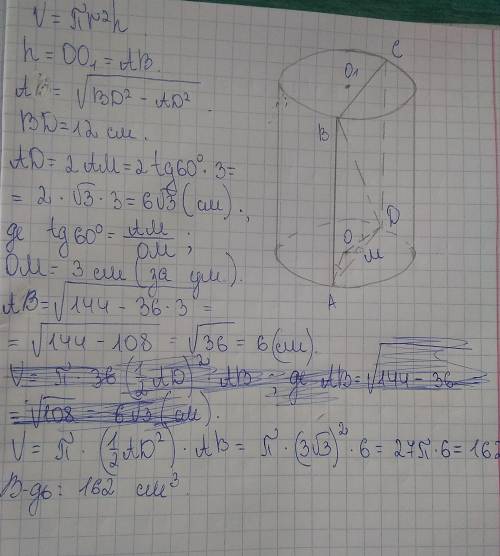 V = πr²h
h = OO₁ = AB.
AB = √(BD² - AD²).
BD = 12 см.
AD = 2 AM = 2 tg60° · 3 =
= 2 · √3 · 3 = 6√3 (см).,
де tg60° = AM/OM ;
OM = 3 см (за ум.).
AB = √(144 - 36 · 3) =
= √(144 - 108) = √36 = 6 (см).
V = π · 36 (1/2 AD)² · AB ; де AB = √(144 - 36)
= √108 = 6√3 (см).
V = π · (1/2 AD²) · AB = π · (3√3)² · 6 = 27π · 6 = 162
В-дь: 162 см³.
C
O₁
B
D
O
M
A